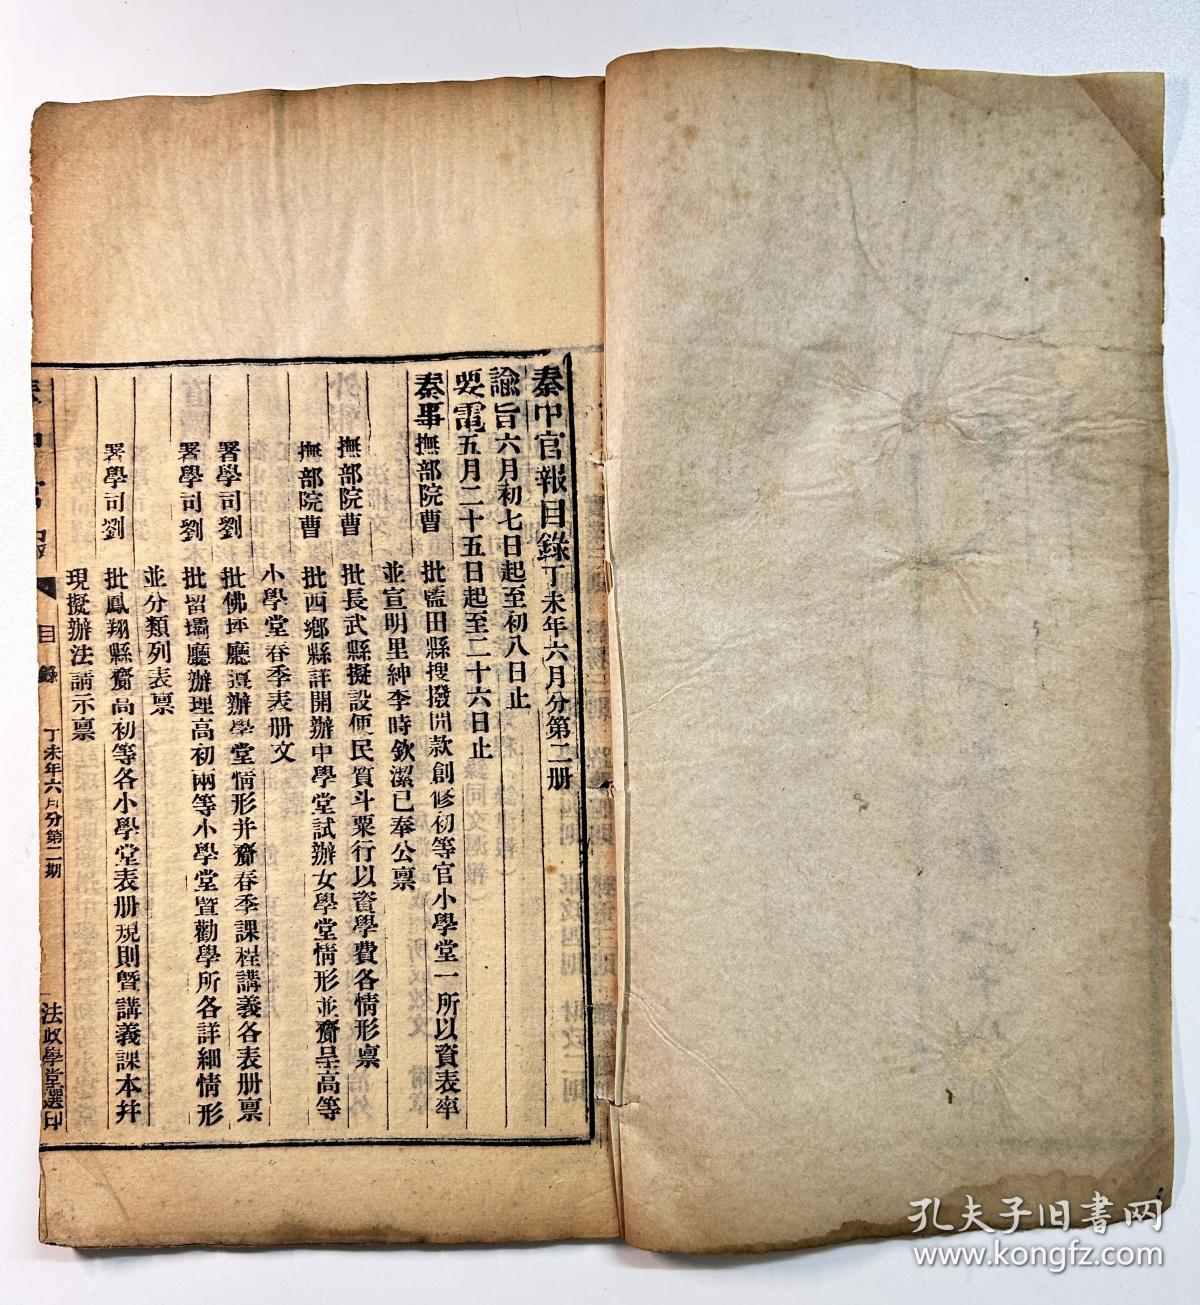 秦中官報目錄丁未年六月分第二册
諭旨六月初七日起至初八日止
要電五月二十五日起至二十六日止
秦事 撫部院曹 批藍田縣搜撥閒款創修初等官小學堂一所以資表率
並宣明里紳李時欽潔已奉公禀
撫部院曹 批長武縣擬設便民質斗粟行以資學費各情形禀
撫部院曹 批西鄉縣詳開辦中學堂試辦女學堂情形並齎呈高等
小學堂春季表册文
署學司劉 批佛坪廳遵辦學堂情形并齎春季課程講義各表册禀
署學司劉 批留壩廳辦理高初兩等小學堂暨勸學所各詳細情形
並分類列表禀
署學司劉 批鳳翔縣齎高初等各小學堂表册規則暨講義課本幷
現擬辦法請示禀
秦中官報 目錄 丁未年六月分第二期 法政學堂選印
孔夫子旧书网
www.kongfz.com